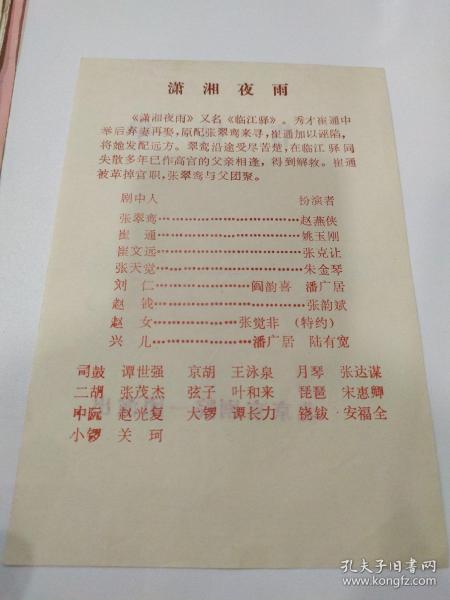 潇湘夜雨
《潇湘夜雨》又名《临江驿》。秀才崔通中
举后弃妻再娶，原配张翠鸾来寻，崔通加以诬陷，
将她发配远方。翠鸾沿途受尽苦楚，在临江驿同
失散多年已作高官的父亲相逢，得到解救。崔通
被革掉官职，张翠鸾与父团聚。
剧中人 扮演者
张翠鸾……………………赵燕侠
崔通……………………姚玉刚
崔文远……………………张克让
张天觉……………………朱金琴
刘仁……………阎韵喜 潘广居
赵钱……………………张韵斌
赵女……………张觉非（特约）
兴儿……………潘广居 陆有宽
司鼓 谭世强 京胡 王泳泉 月琴 张达谋
二胡 张茂杰 弦子 叶和来 琵琶 宋惠卿
中阮 赵光复 大锣 谭长力 饶钹·安福全
小锣 关珂
孔夫子旧书网
www.kongfz.com